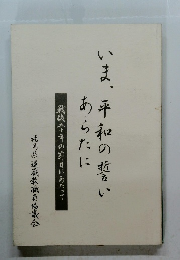 いま、平和の誓い
あらたに
戦後五十年の節目にあたって
埼玉県退職教職員協議会